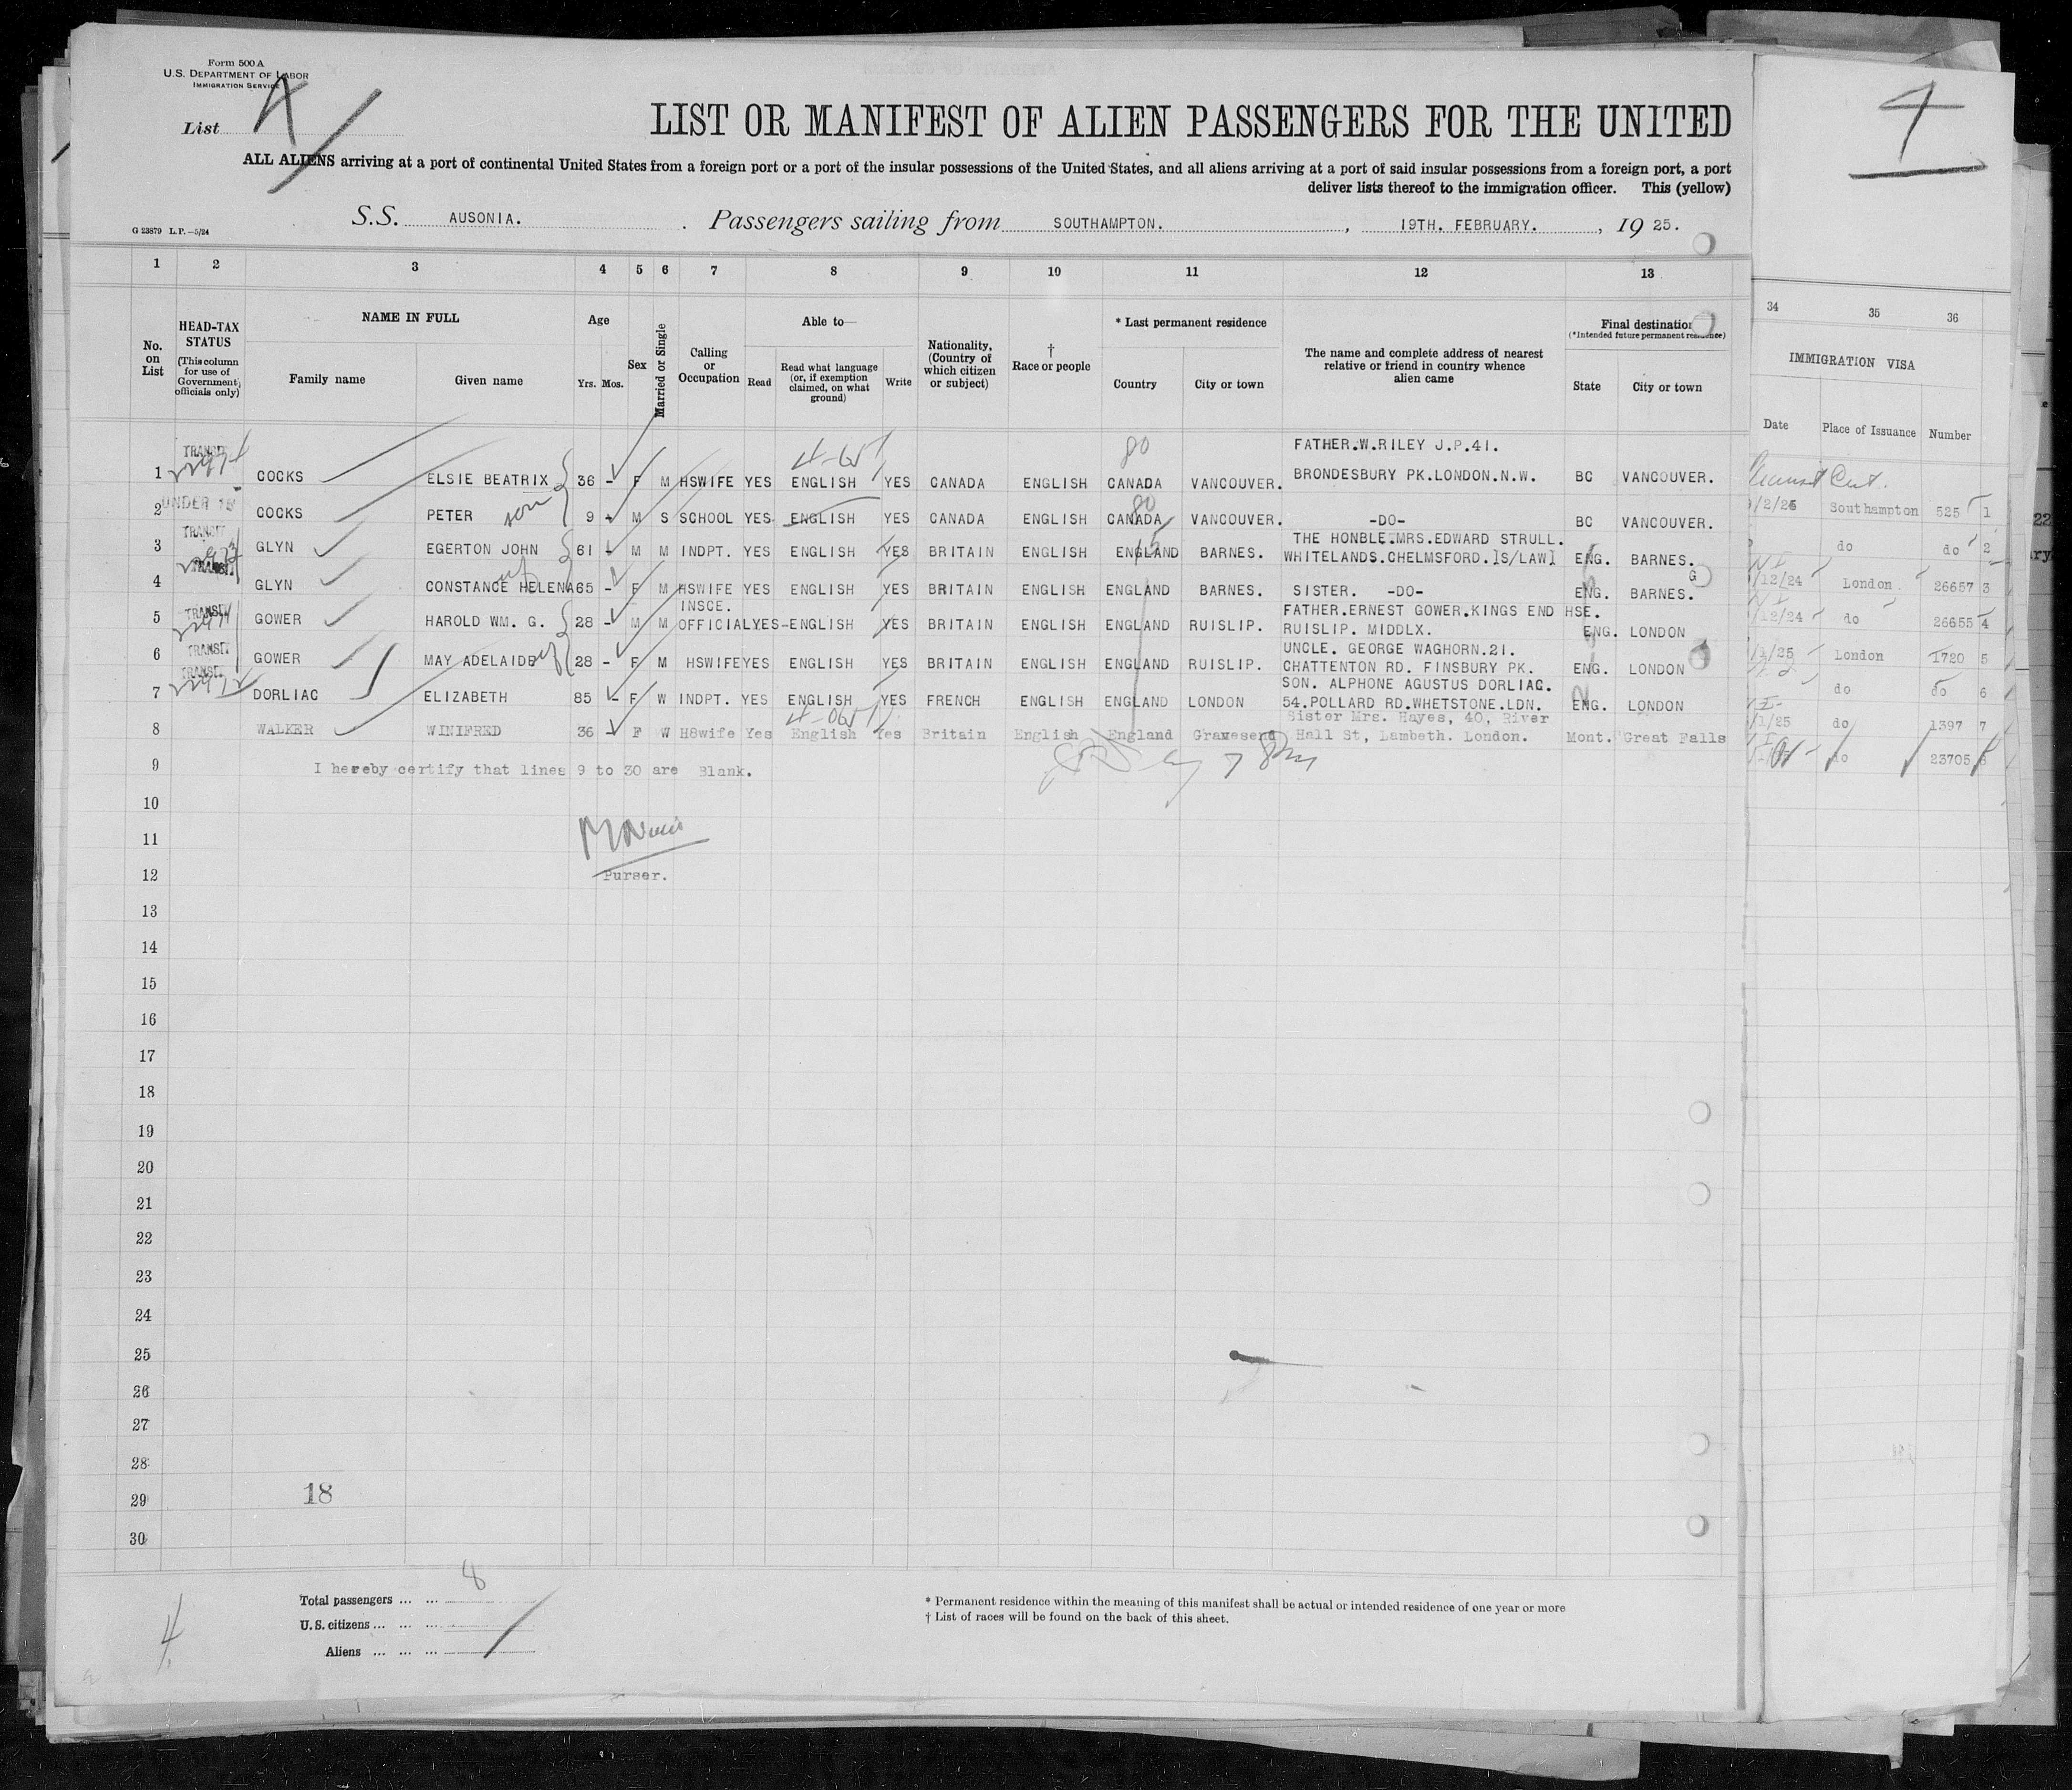 Form 500 A
U.S. DEPARTMENT OF LABOR
IMMIGRATION SERVICE
List 4
4
LIST OR MANIFEST OF ALIEN PASSENGERS FOR THE UNITED
ALL ALIENS arriving at a port of continental United States from a foreign port or a port of the insular possessions of the United States, and all aliens arriving at a port of said insular possessions from a foreign port, a port
deliver lists thereof to the immigration officer. This (yellow)
G 23879 L.P.—5/24
S.S. AUSONIA. Passengers sailing from SOUTHAMPTON. , 19TH. FEBRUARY. , 19 25.
1 2 3 4 5 6 7 8 9 10 11 12 13 34 35 36
No. on List
HEAD-TAX STATUS (This column for use of Government officials only)
NAME IN FULL
Family name Given name
Age Yrs. Mos.
Sex
Married or Single
Calling or Occupation
Able to—
Read Read what language (or, if exemption claimed, on what ground) Write
Nationality, (Country of which citizen or subject)
† Race or people
* Last permanent residence
Country City or town
The name and complete address of nearest relative or friend in country whence alien came
Final destination (*Intended future permanent residence)
State City or town
IMMIGRATION VISA
Date Place of Issuance Number
80
FATHER.W.RILEY J.P.41.
1 TRANSIT COCKS ELSIE BEATRIX 36 - F M HSWIFE YES ENGLISH YES CANADA ENGLISH CANADA VANCOUVER. BRONDESBURY PK.LONDON.N.W. BC VANCOUVER.
Transit Cert.
80
2 UNDER 16 COCKS PETER son 9 - M S SCHOOL YES ENGLISH YES CANADA ENGLISH CANADA VANCOUVER. -DO- BC VANCOUVER.
Southampton 525 1
THE HONBLE.MRS.EDWARD STRULL.
3 TRANSIT GLYN EGERTON JOHN 61 - M M INDPT. YES ENGLISH YES BRITAIN ENGLISH ENGLAND BARNES. WHITELANDS.CHELMSFORD.]S/LAW] ENG. BARNES.
do do 2
4 TRANSIT GLYN CONSTANCE HELENA wf 65 - F M HSWIFE YES ENGLISH YES BRITAIN ENGLISH ENGLAND BARNES. SISTER. -DO- ENG. BARNES.
G
/12/24 London. 26657 3
INSCE. FATHER.ERNEST GOWER.KINGS END HSE.
5 TRANSIT GOWER HAROLD WM. G. 28 - M M OFFICIAL YES-ENGLISH YES BRITAIN ENGLISH ENGLAND RUISLIP. RUISLIP. MIDDLX. ENG. LONDON
/12/24 do 26655 4
UNCLE. GEORGE WAGHORN.21.
6 TRANSIT GOWER MAY ADELAIDE wf 28 - F M HSWIFE YES ENGLISH YES BRITAIN ENGLISH ENGLAND RUISLIP. CHATTENTON RD. FINSBURY PK. ENG. LONDON
/1/25 London 1720 5
SON. ALPHONE AGUSTUS DORLIAC.
7 TRANSIT DORLIAC ELIZABETH 85 - F W INDPT. YES ENGLISH YES FRENCH ENGLISH ENGLAND LONDON 54.POLLARD RD.WHETSTONE.LDN. ENG. LONDON
do do 6
Sister Mrs. Hayes, 40, River
8 WALKER WINIFRED 36 - F W H8wife Yes English Yes Britain English England Gravesend Hall St, Lambeth. London. Mont. Great Falls
/1/25 do 1397 7
9 I hereby certify that lines 9 to 30 are Blank.
do 23705 8
10
11
12 Purser.
13
14
15
16
17
18
19
20
21
22
23
24
25
26
27
28
29 18
30
Total passengers ... ... 8
U.S. citizens ... ... ...
Aliens ... ... ...
4
* Permanent residence within the meaning of this manifest shall be actual or intended residence of one year or more
† List of races will be found on the back of this sheet.